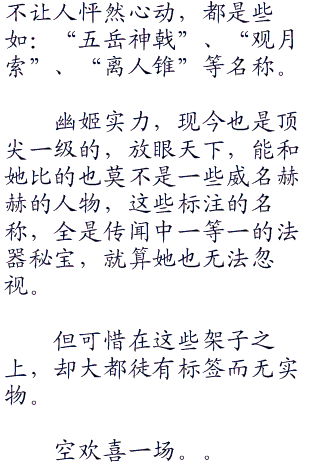 不让人怦然心动，都是些
如：“五岳神戟”、“观月
索”、“离人锥”等名称。
幽姬实力，现今也是顶
尖一级的，放眼天下，能和
她比的也莫不是一些威名赫
赫的人物，这些标注的名
称，全是传闻中一等一的法
器秘宝，就算她也无法忽
视。
但可惜在这些架子之
上，却大都徒有标签而无实
物。
空欢喜一场。。